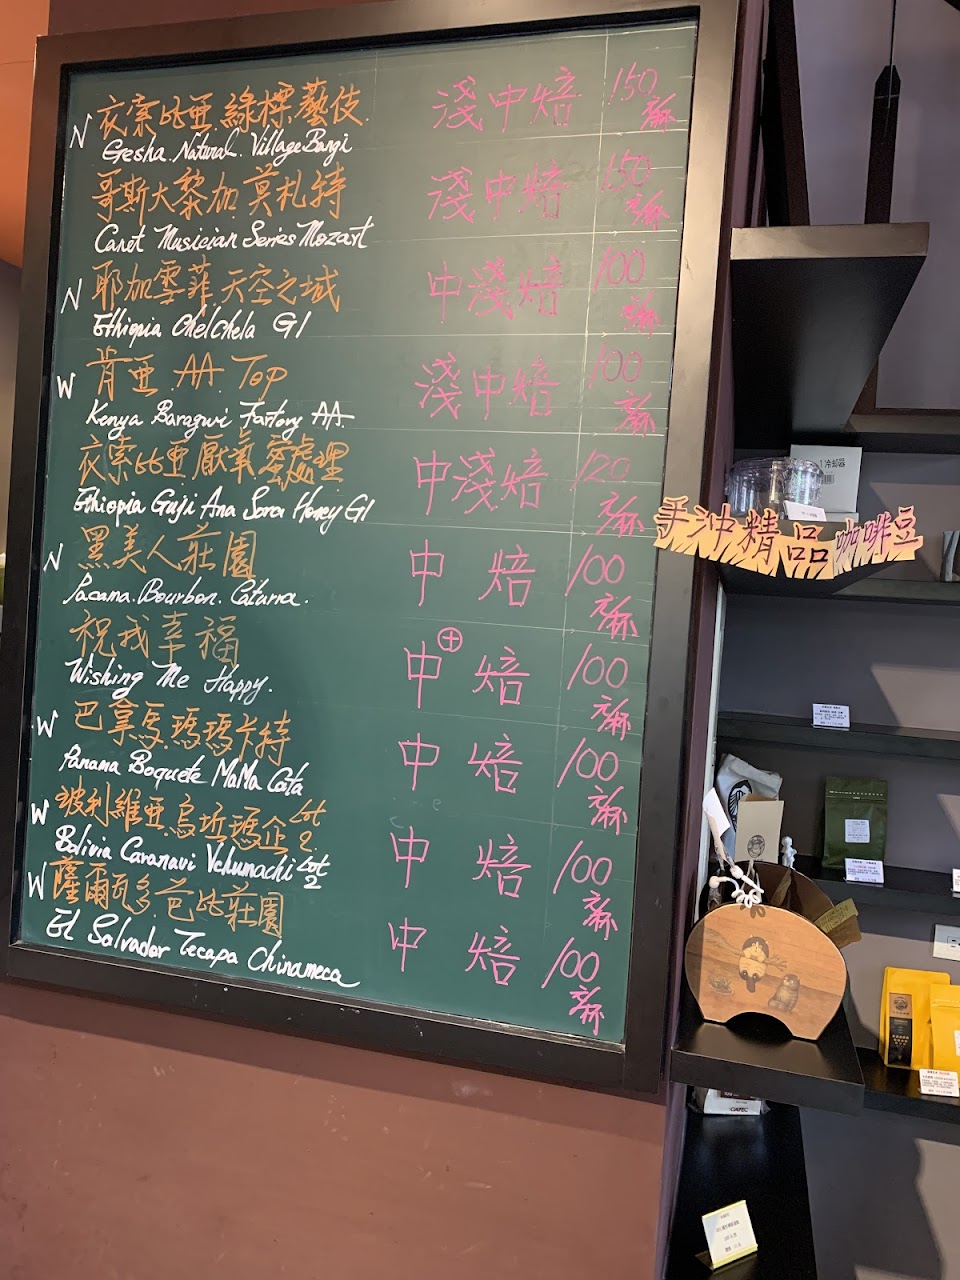 衣索比亞.綠標.藝伎. 淺中焙 150元/杯
N Gesha Natural. Village Bangi
哥斯大黎加.莫札特 淺中焙 150元/杯
Canet Musician Series Mozart
耶加雪菲.天空之城 中淺焙 100元/杯
N Ethiopia Chelchela G1
肯亞 AA Top 淺中焙 100元/杯
W Kenya Baragwi Factory AA
衣索比亞厭氧蜜處理 中淺焙 120元/杯
Ethiopia Guji Ana Sora Honey G1
黑美人莊園 中焙 100元/杯
N Pacama.Bourbon.Caturra.
祝我幸福 中⊕焙 100元/杯
Wishing Me Happy.
巴拿馬.瑪瑪卡特 中焙 100元/杯
W Panama Boquete MaMa Cata
玻利維亞.烏坵瑪企 Lot 2 中焙 100元/杯
W Bolivia Caranavi Vchumachi Lot 2
薩爾瓦多芭比莊園 中焙 100元/杯
W El Salvador Tecapa Chinameca
手沖精品咖啡豆
冷却器